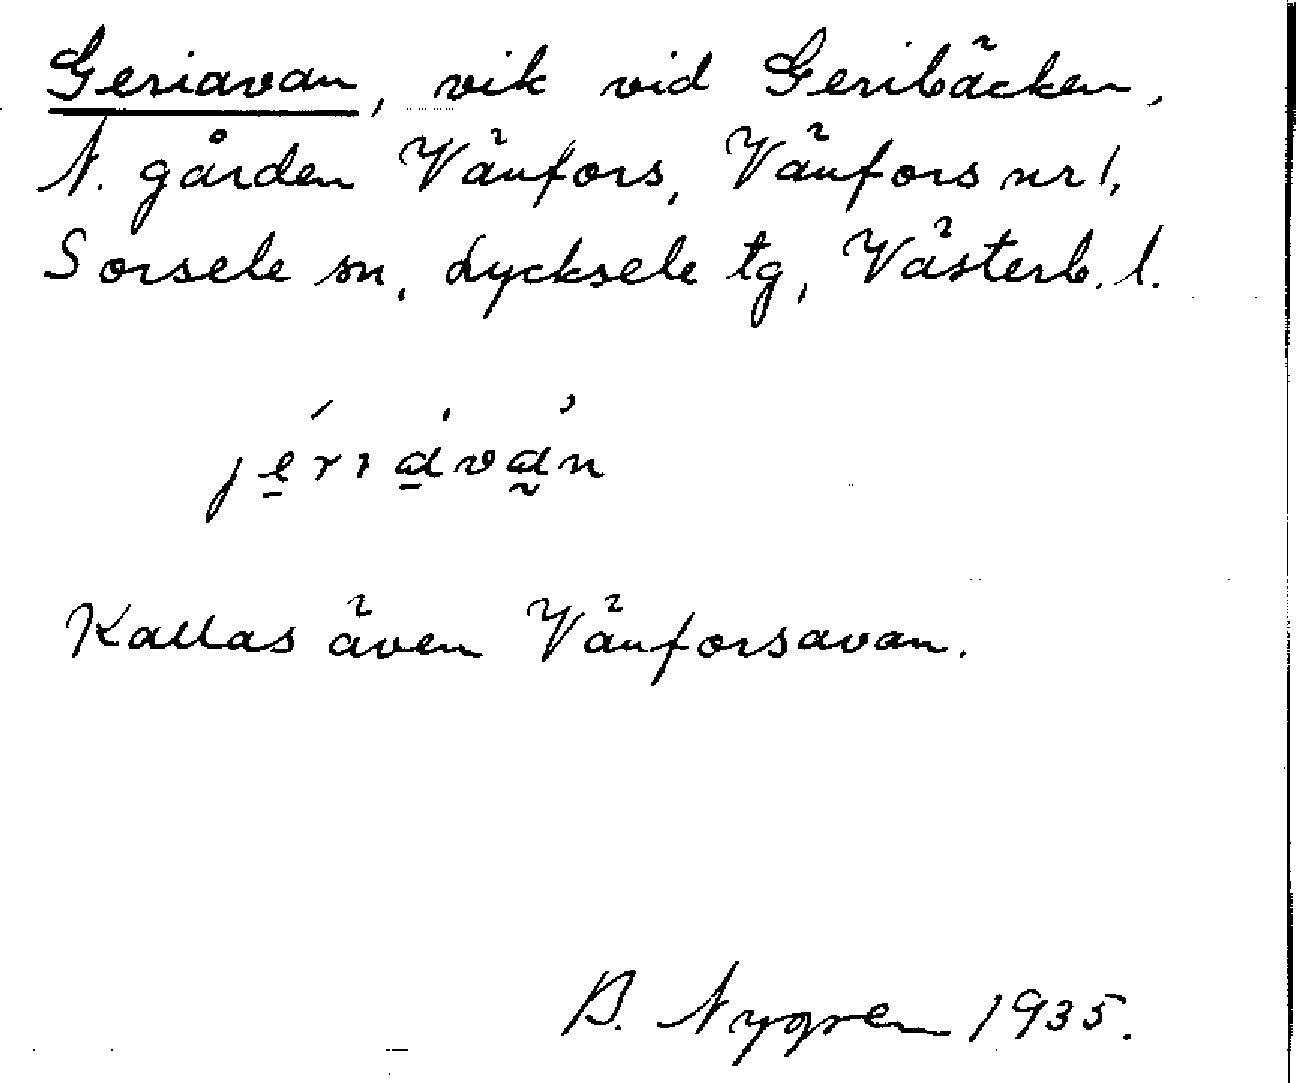 Geriavan, vik vid Geribäcken,
N. gården Vänfors, Vänfors nr 1,
Sorsele sn, Lycksele tg, Västerb. l.
jeriavan
Kallas även Vänforsavan.
B. Nygren 1935.